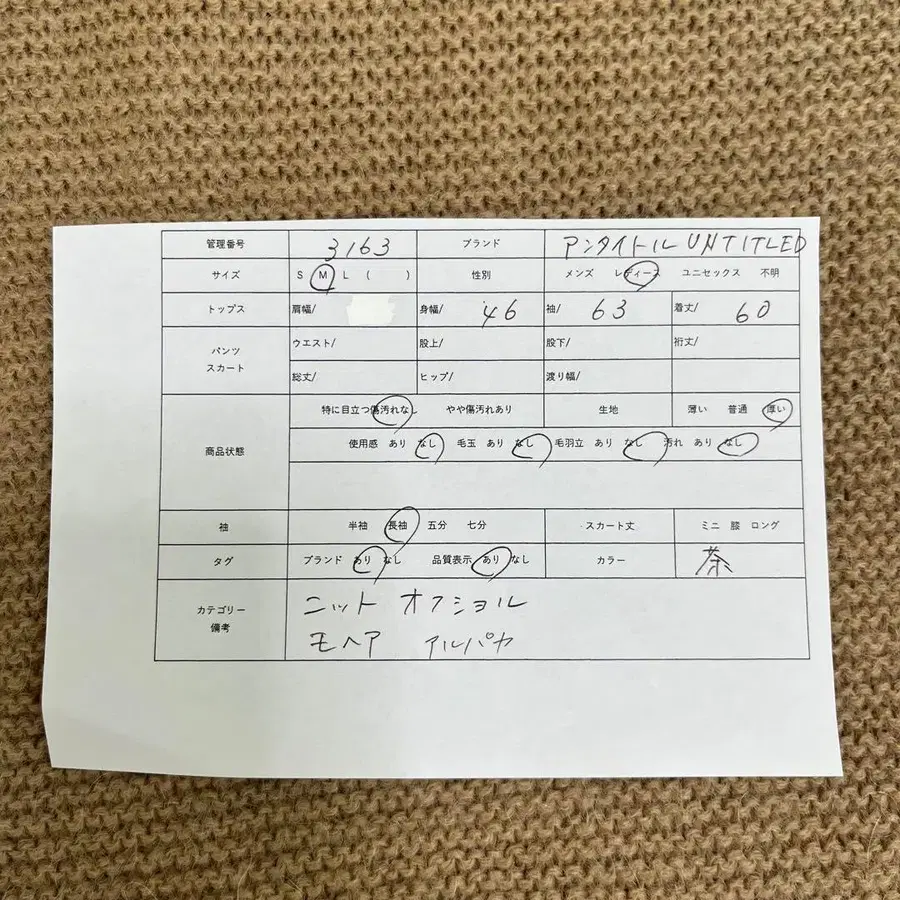 管理番号 3163 ブランド アンタイトル UNTITLED
サイズ S M L ( ) 性別 メンズ レディース ユニセックス 不明
トップス 肩幅/ 身幅/ 46 袖/ 63 着丈/ 60
パンツ スカート ウエスト/ 股上/ 股下/ 裄丈/
総丈/ ヒップ/ 渡り幅/
商品状態 特に目立つ傷汚れなし やや傷汚れあり 生地 薄い 普通 厚い
使用感 あり なし 毛玉 あり なし 毛羽立 あり なし 汚れ あり なし
袖 半袖 長袖 五分 七分 スカート丈 ミニ 膝 ロング
タグ ブランド あり なし 品質表示 あり なし カラー 茶
カテゴリー 備考 ニット オフショル
モヘア アルパカ